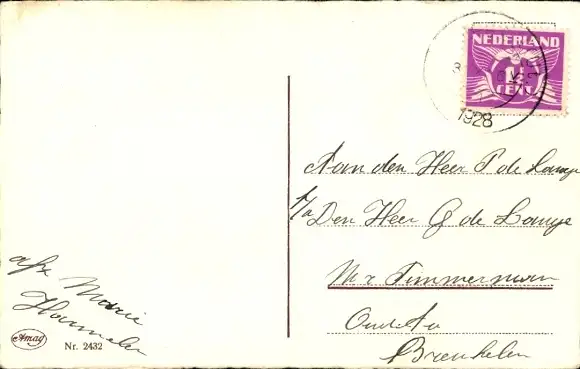 NEDERLAND
1½
CENT
1928
Aan den Heer P de Lange
p/a Den Heer G de Lange
Mr Timmerman
Oud Aa
Breukelen
afz Marie
Hammelen
Amag
Nr. 2432